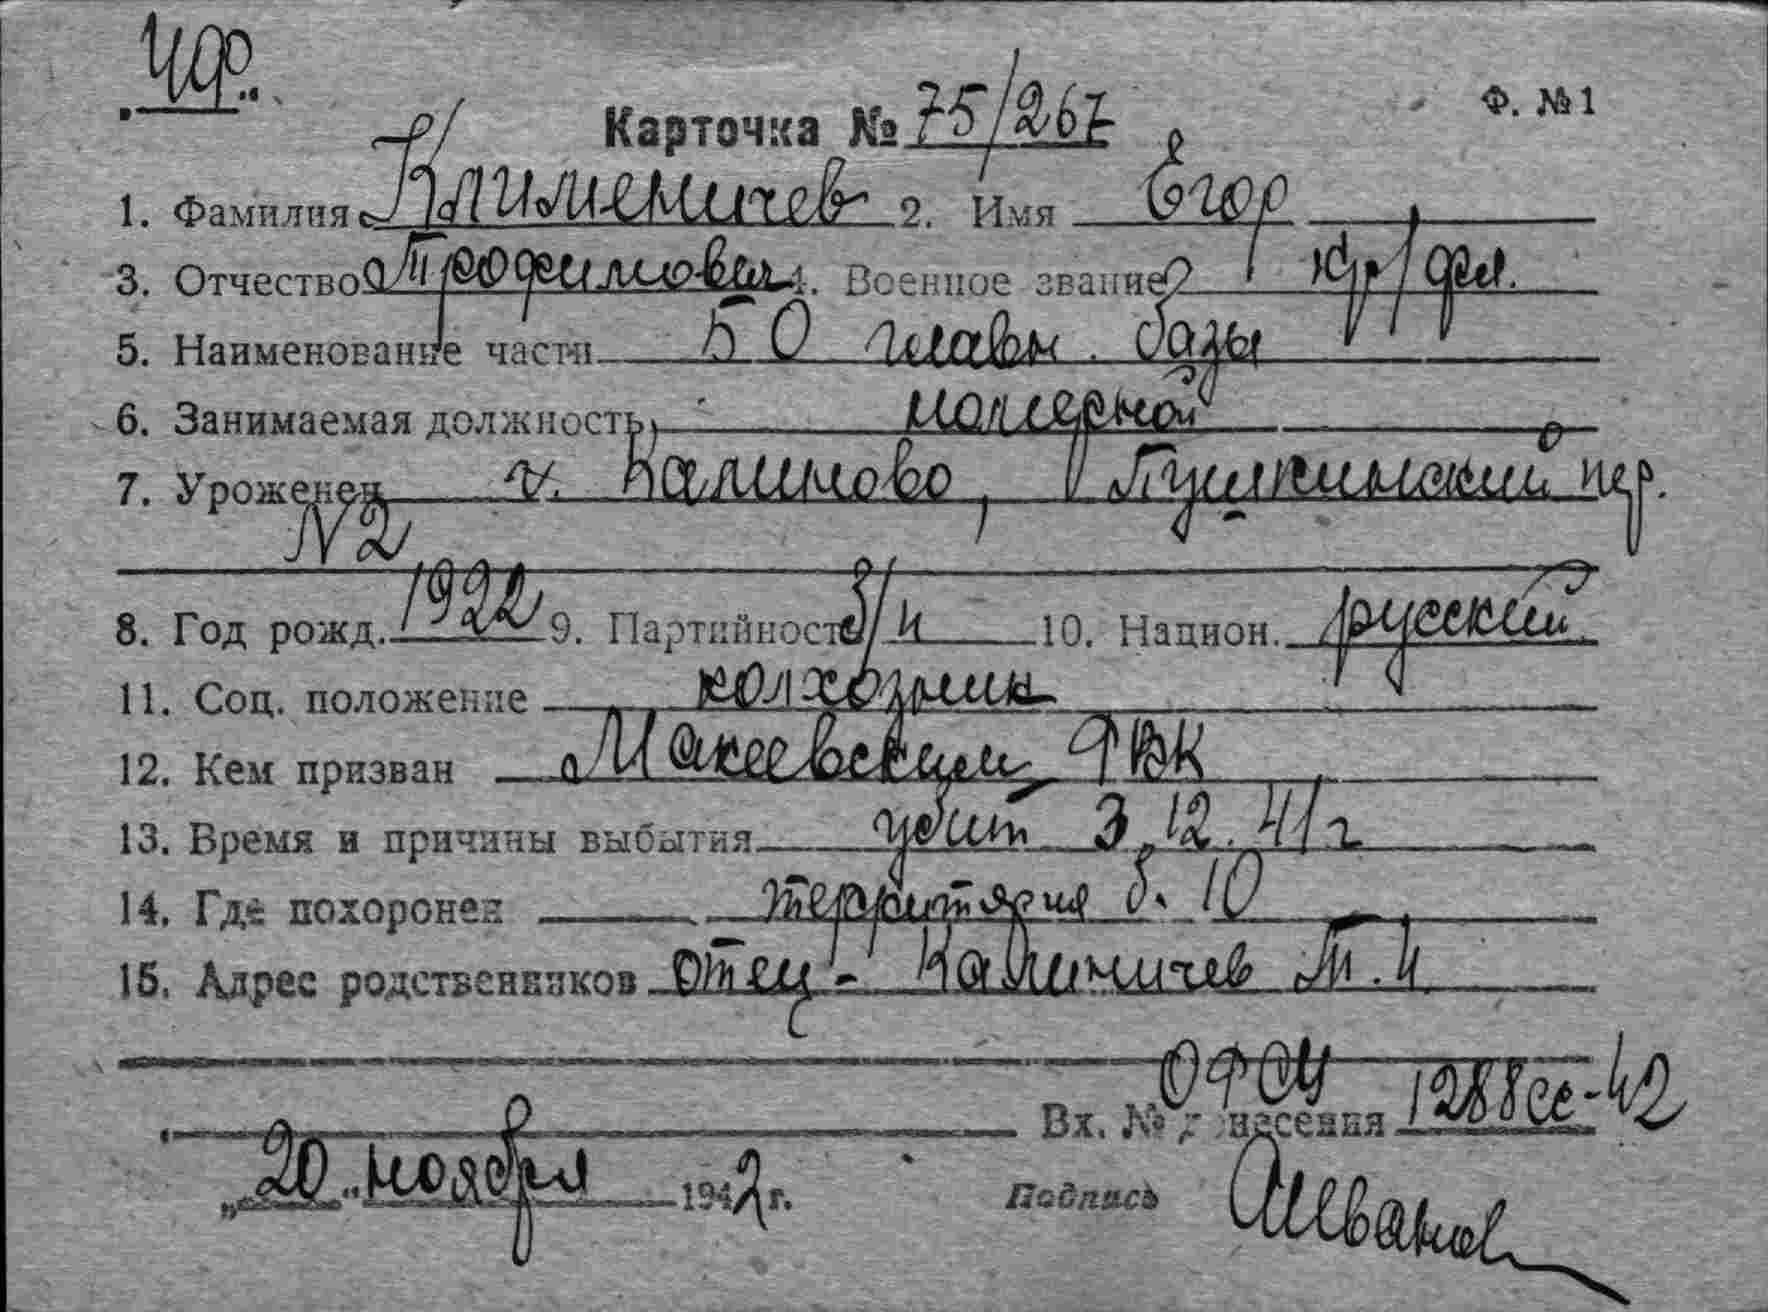 ЧФ.
Карточка № 75/267
Ф. № 1
1. Фамилия Клименичев 2. Имя Егор
3. Отчество Трофимович 4. Военное звание кр/фл.
5. Наименование части БО главн. базы
6. Занимаемая должность
7. Уроженец г. Калиново, Пушкинский пер.
N 2
8. Год рожд. 1922 9. Партийность б/п 10. Национ. русский
11. Соц. положение колхозник
12. Кем призван Макеевским РВК
13. Время и причины выбытия убит 3.12.41 г
14. Где похоронен территория б. 10
15. Адрес родственников отец - Калиничев Т. И.
Вх. № донесения 1288сс-42
„20" ноября 1942 г. Подпись АИванов